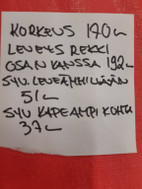 KORKEUS 140 cm
LEVEYS REKKI
OSAN KANSSA 192 cm
SYV. LEVEÄMMILLÄÄN
51 cm
SYV KAPEAMPI KOHTA
37 cm